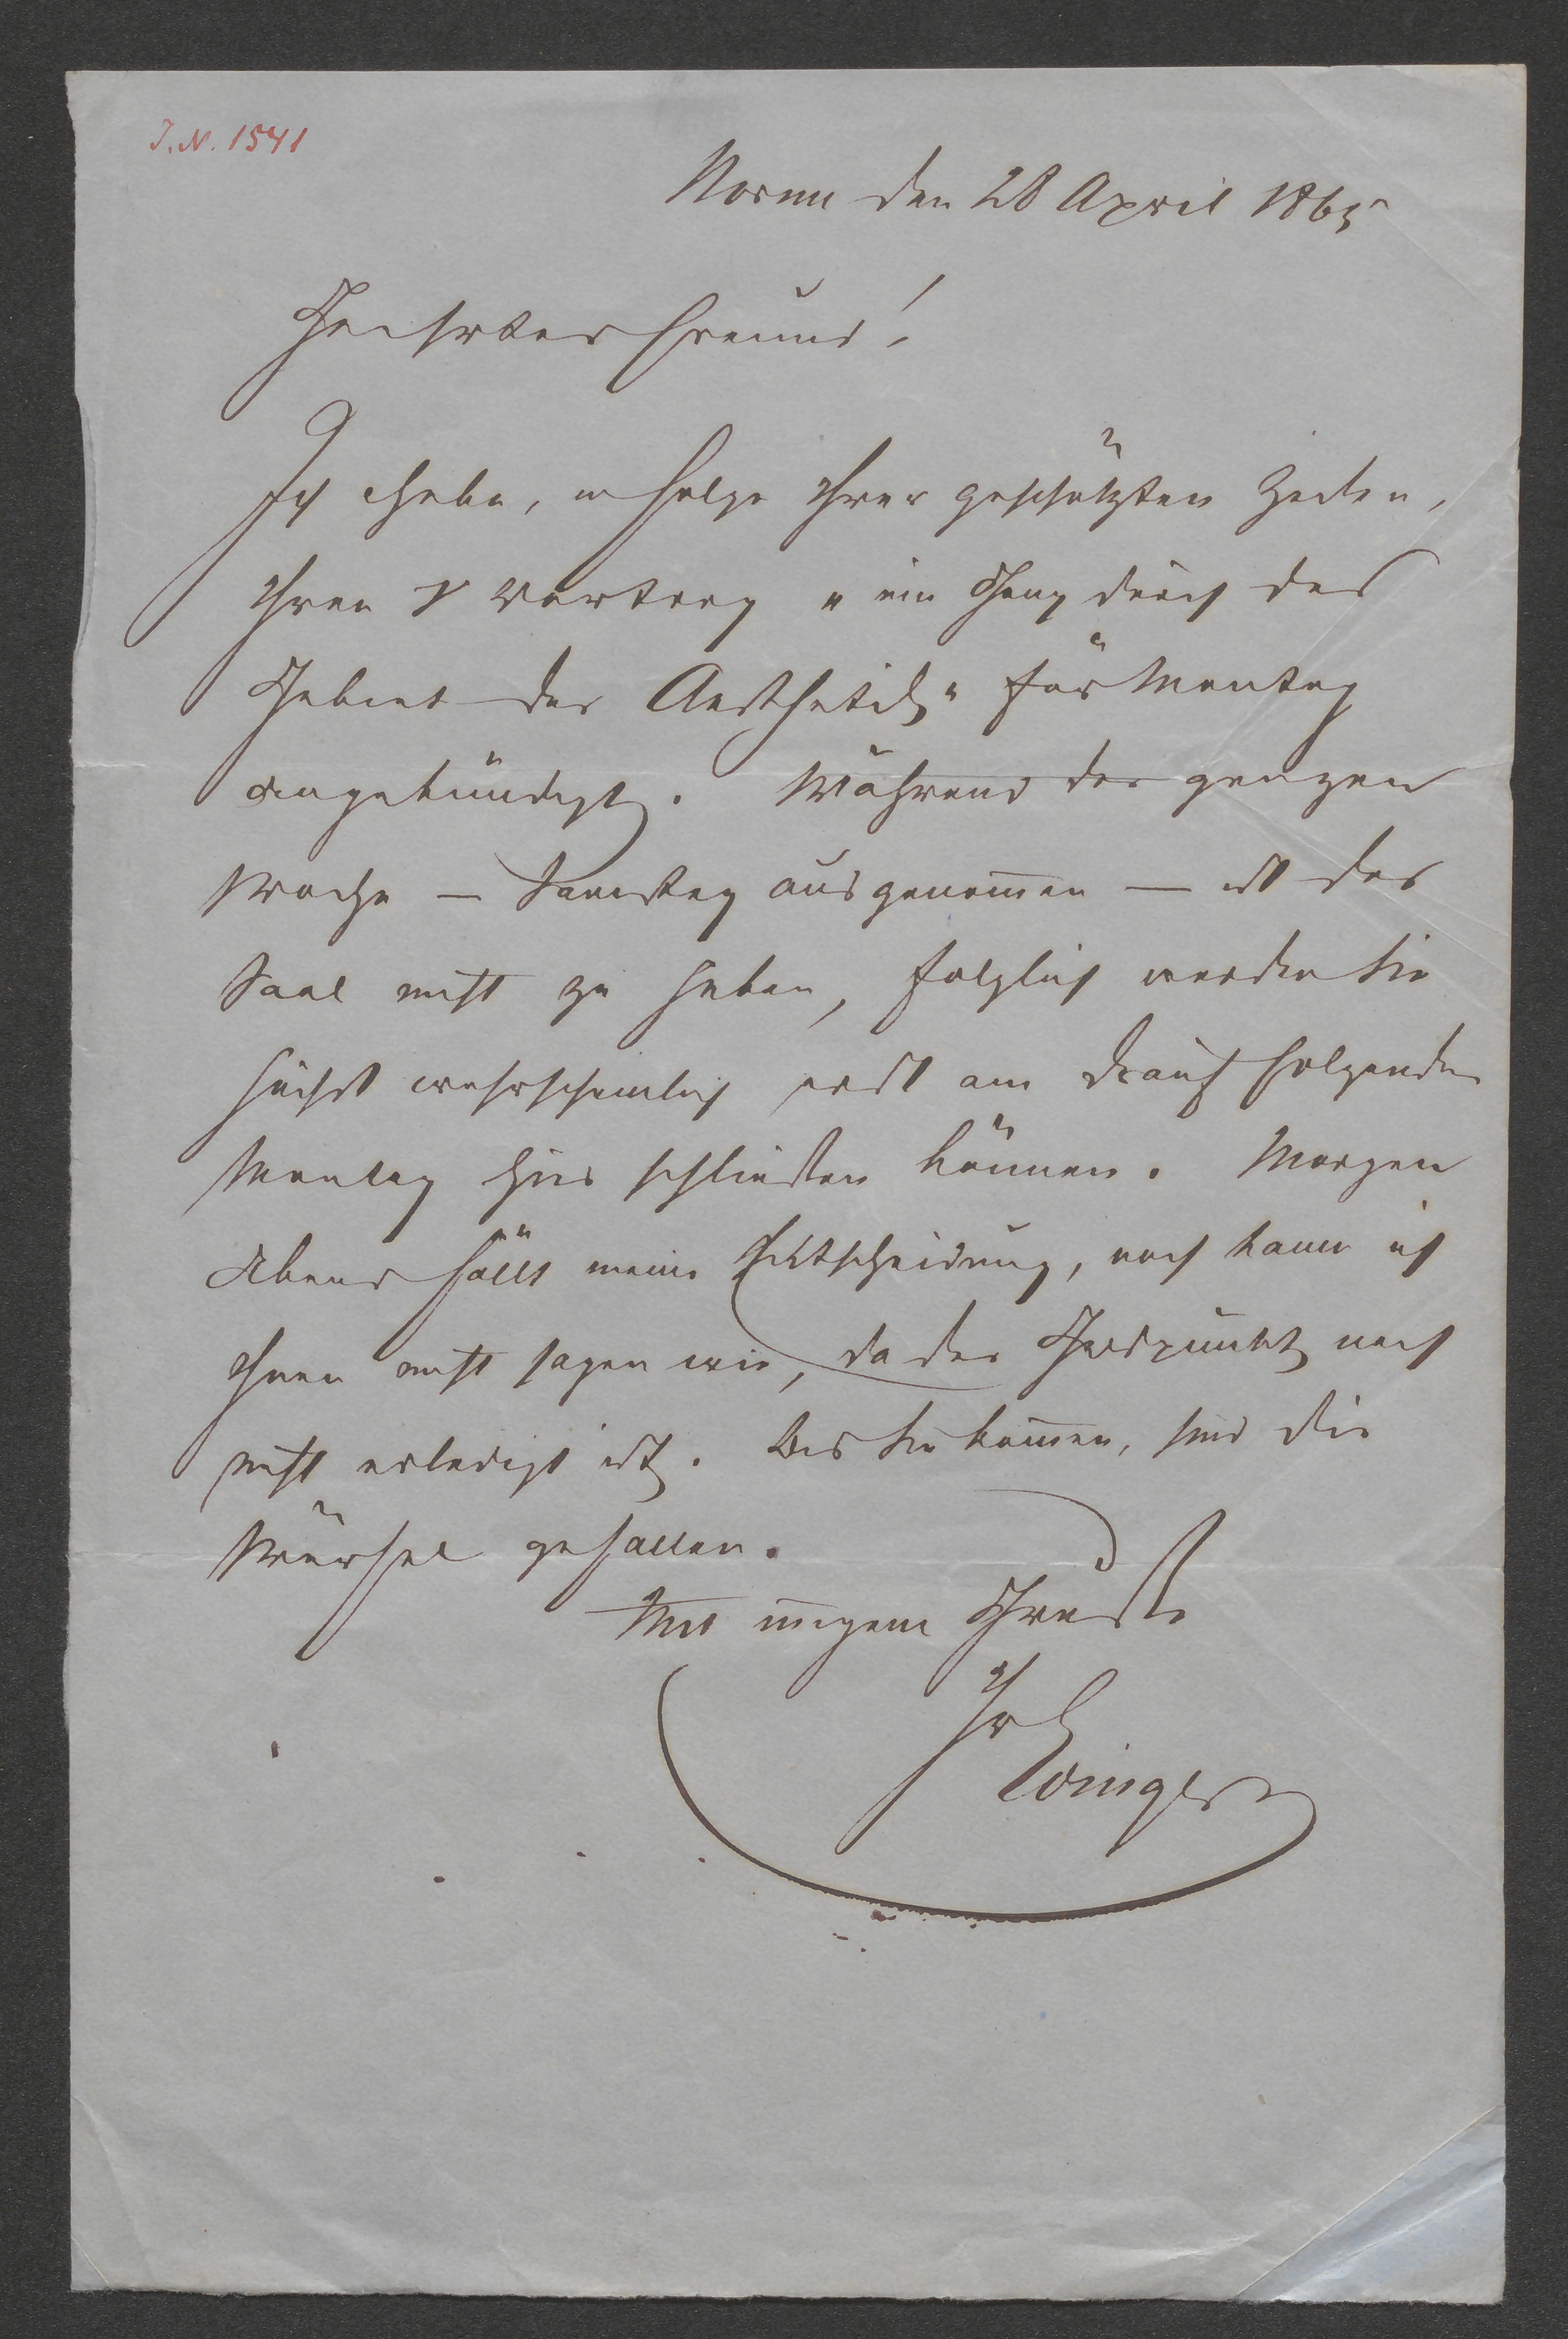 J. N. 1541
Worms den 28 April 1865
Geehrter Freund!
Ich habe, in Folge Ihrer geschätzten Zeilen,
Ihren Vortrag „ein Gang durch das
Gebiet der Aesthetik“ für Montag
angekündigt. Während der ganzen
Woche — Samstag ausgenommen — ist der
Saal nicht zu haben, folglich werden Sie
höchst wahrscheinlich erst am darauf folgenden
Montag hier schließen können. Morgen
Abend fällt meine Entscheidung, noch kann ich
Ihnen nicht sagen wie, da der Geldpunkt noch
nicht erledigt ist. Bis Sie kommen, sind die
Würfel gefallen.
Mit innigem Gruße
Ihr